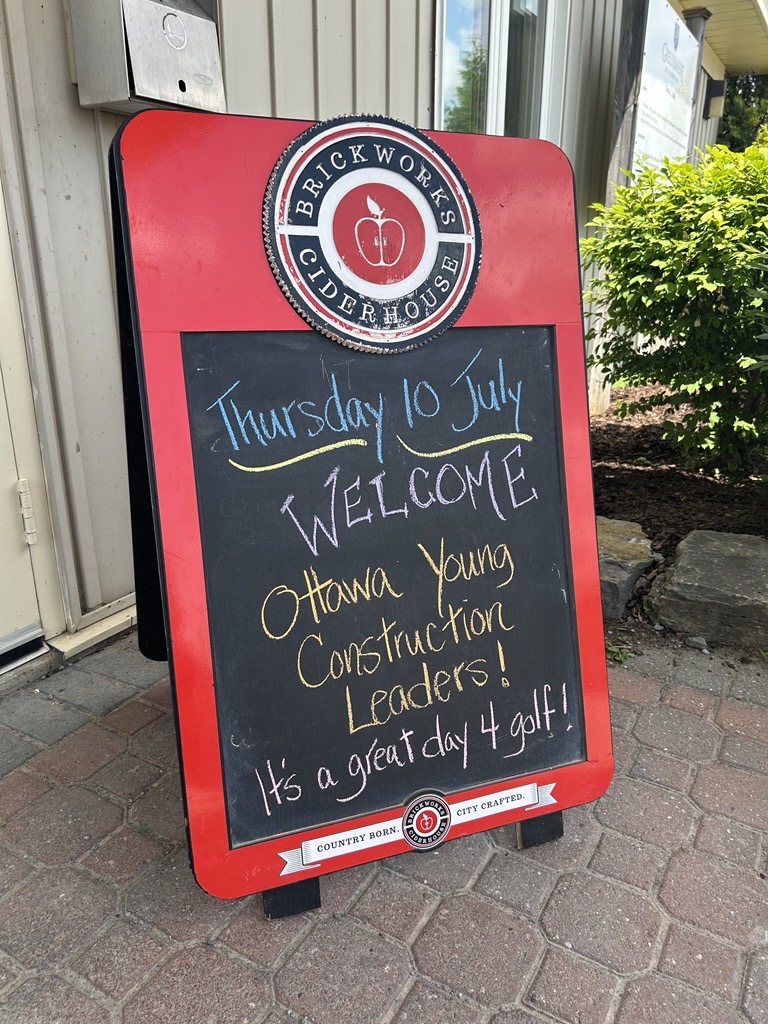 BRICKWORKS
CIDERHOUSE
Thursday 10 July
WELCOME
Ottawa Young
Construction
Leaders!
It's a great day 4 golf!
COUNTRY BORN.
BRICKWORKS
CIDERHOUSE
CITY CRAFTED.